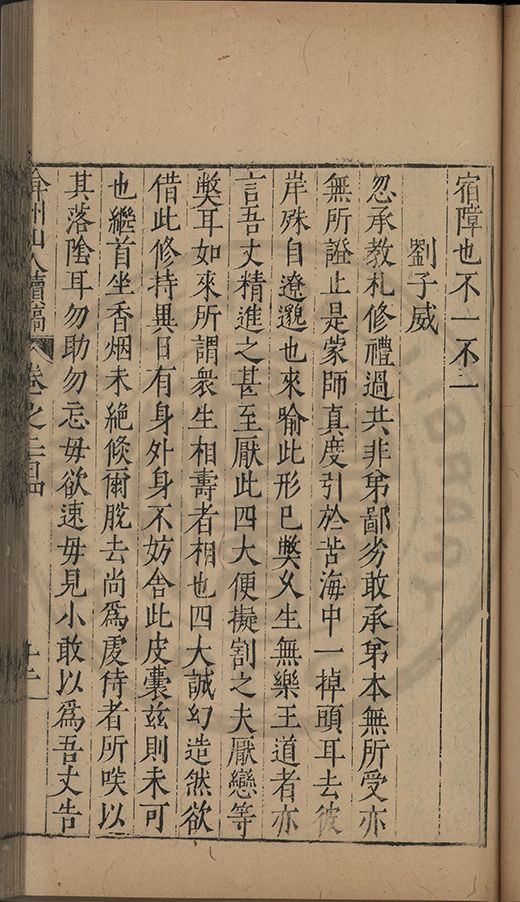 宿障也不一不一
劉子威
忽承教札修禮過共非弟鄙劣敢承弟本無所受亦
無所證止是蒙師真度引於苦海中一掉頭耳去彼
岸殊自遼邈也來喻此形已獘久生無樂王道者亦
言吾丈精進之甚至厭此四大便擬割之夫厭戀等
獘耳如來所謂衆生相壽者相也四大誠幻造然欲
借此修持異日有身外身不妨舍此皮囊茲則未可
也繼首坐香烟未絶倐爾脫去尚爲䖍侍者所咲以
其落陰耳勿助勿忘毋欲速毋見小敢以爲吾丈告
弇州山人續稿 卷之